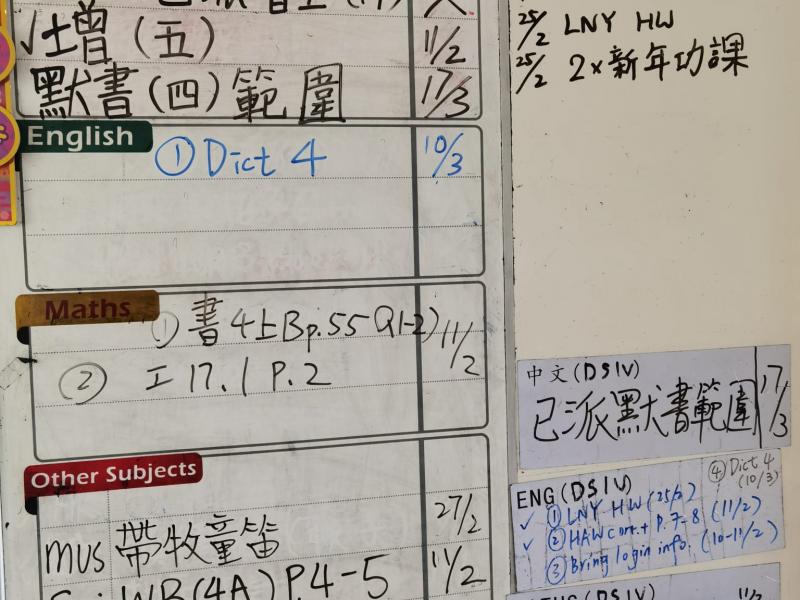 √壆(五) 11/2
默書(四)範圍 17/3
English
① Dict 4 10/3
Maths
① 書4上B p.55 Q1-2) 11/2
② 工17.1 P.2
Other Subjects
mus 帶牧童笛 27/2
WB(4A) P.4-5 11/2
25/2 LNY HW
25/2 2×新年功課
中文(DSIV) 17/3
已派默書範圍
ENG(DSIV) ④ Dict 4 (10/3)
✓ ① LNY HW (25/2)
✓ ② HAW corr. + P.7-8 (11/2)
③ Bring login info. (10-11/2)